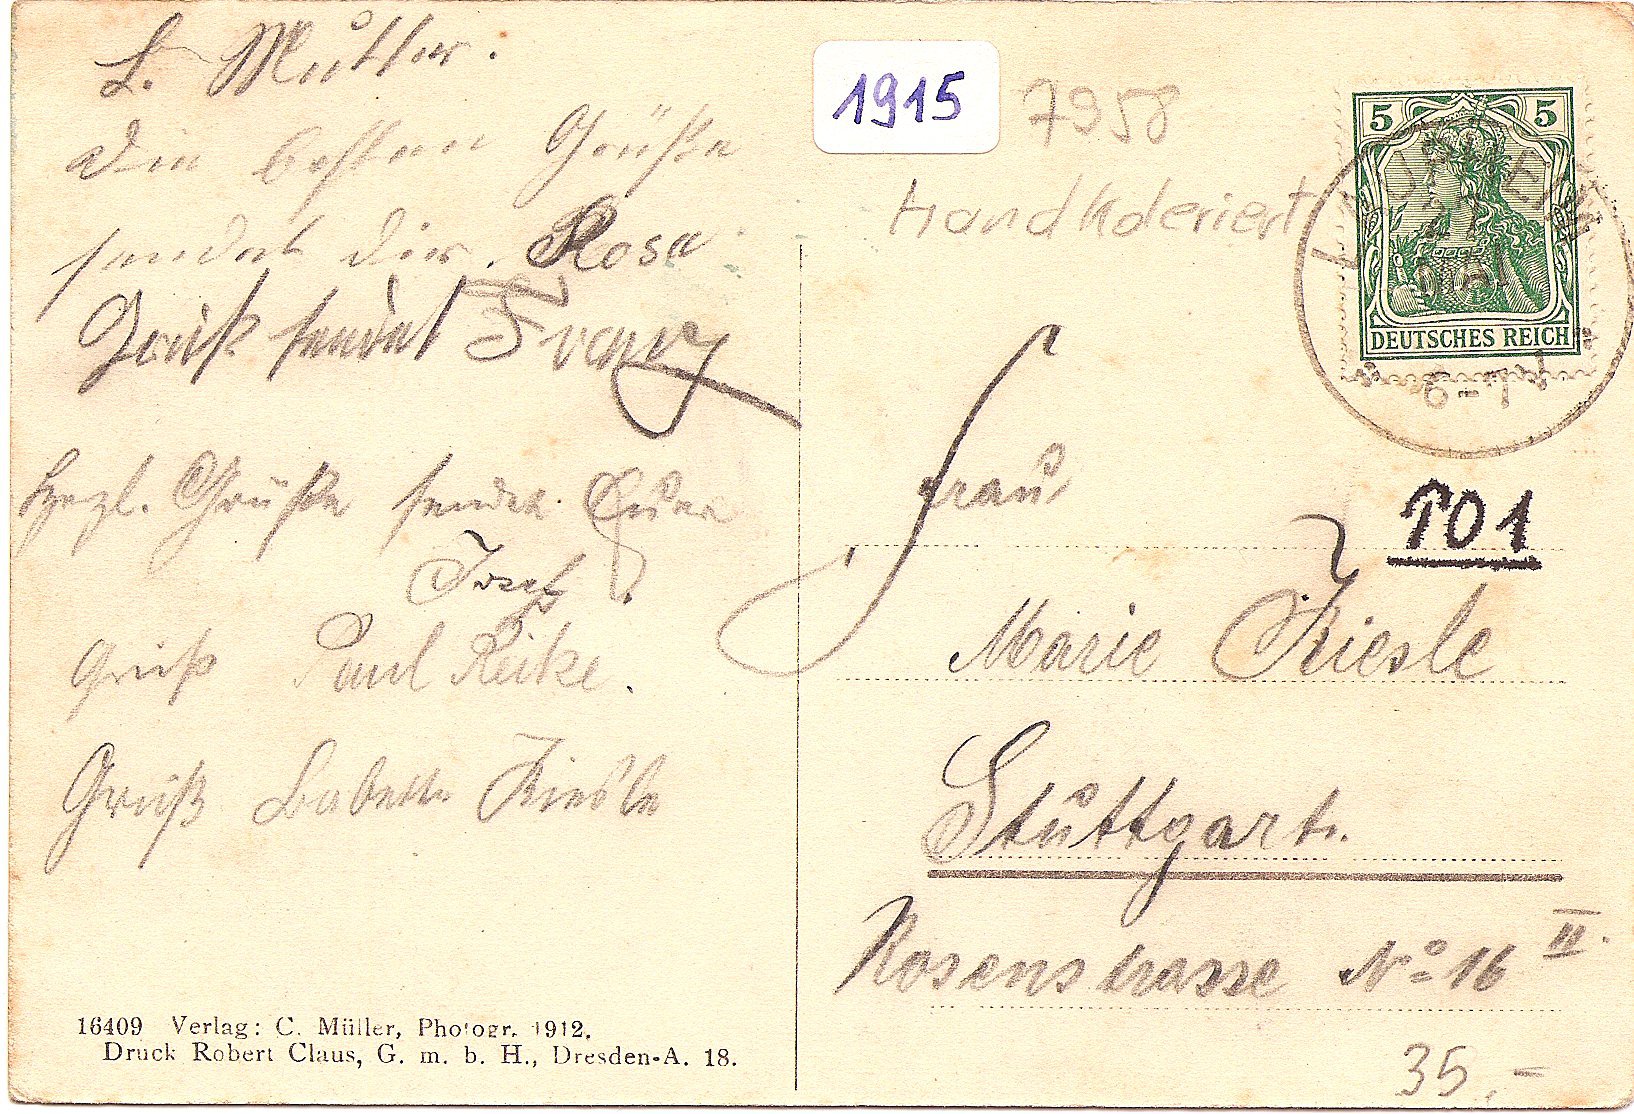 L. Mutter.
Die besten Grüße
sendet dir Rosa
Gruß sendet Franz
Herzl. Grüße sendet
Josef
Gruß Paul Reike.
Gruß Babette Kiesle
16409 Verlag: C. Müller, Photogr. 1912.
Druck Robert Claus, G. m. b. H., Dresden-A. 18.
1915
7958
Handkoleriert
5 5
DEUTSCHES REICH
LAUPHEIM
6-7 N
101
Frau
Marie Kiesle
Stuttgart.
Rosenstrasse No 16 II.
35.-